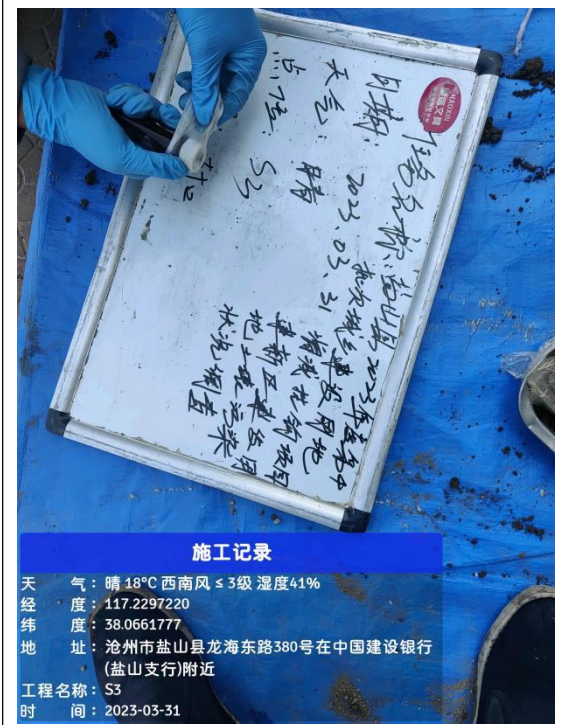 盐山县2023年度第
批次城乡建设用地
增减挂钩项目
建新区建设用
地土壤污染
状况调查
日期: 2023.03.31
天气: 晴
点位: S3
施工记录
天 气：晴 18℃ 西南风 ≤ 3级 湿度41%
经 度：117.2297220
纬 度：38.0661777
地 址：沧州市盐山县龙海东路380号在中国建设银行
(盐山支行)附近
工程名称：S3
时 间：2023-03-31